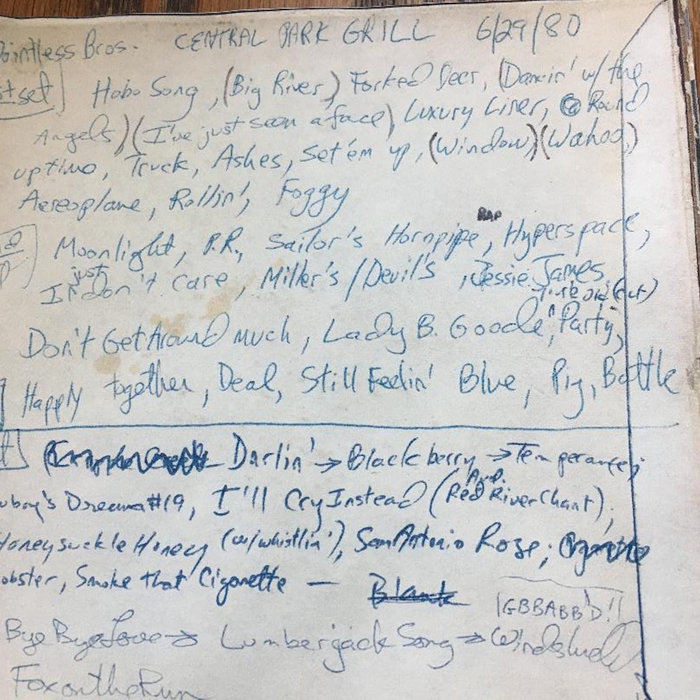 Pointless Bros. CENTRAL PARK GRILL 6/29/80
1st set Hobo Song, (Big River) Forked Deer, (Dancin' w/ the
Angels) (I've just seen a face) Luxury Liner, Round
uptime, Truck, Ashes, Set 'em up, (Window) (Wahoo)
Aereoplane, Rollin', Foggy
RAP
Moonlight, P.P., Sailor's Hornpipe, Hyperspace,
just
I don't care, Miller's / Devil's, Jessie James
Time out (cut)
Don't Get Around much, Lady B. Goode, Party,
Happly together, Deal, Still Feelin' Blue, Pig, Bottle
Darlin' → Blackberry → Temperance;
Dream #19, I'll Cry Instead (Red River Chant);
Honeysuckle Honey (w/ whistlin'), San Antonio Rose;
obster, Smoke that Cigarette —
IGBBABB'D!!
Bye Bye Love → Lumberjack Song →
Fox on the Run